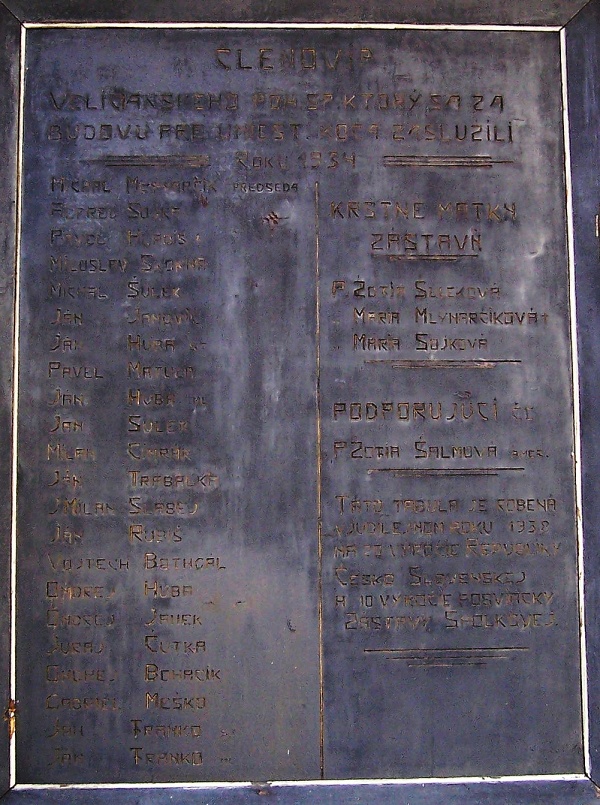 ČLENOVIA
KTORÝ SA ZA
BUDOVU PRE ZASLÚŽILI
ROKU 1934
MICHAL PREDSEDA
PAVEL
MILOSLAV SVOKHA
MICHAL ŠULEK
JÁN JANOVIC
JÁN HUBA ST
PAVEL MATULA
JÁN HUBA ML
JÁN ŠULEK
MILAN
JÁN TREBALKA
J. MILAN SLABEJ
JÁN RUBIŠ
VOJTECH BOTHGÁL
ONDREJ HUBA
ONDREJ JANEK
JURAJ CUTKA
ONDREJ BOHÁČIK
GABRIEL MEŠKO
JÁN TRANKO ST
JÁN TRANKO ML
KRSTNÉ MATKY
ZÁSTAVY
P. ŽOFIA SULEKOVÁ
„ MARIA MLYNARČIKOVÁ †
„ MARIA SOJKOVÁ
PODPORUJÚCÍ ČL
P. ŽOFIA ŠALMOVÁ AMER.
TÁTO TABULA JE ROBENÁ
V JUBILEJNOM ROKU 1938
NA 20 VÝROČIE REPUBLIKY
ČESKO SLOVENSKEJ
A 10 VÝROČIE POSVIACKY
ZÁSTAVY SPOLKOVEJ.